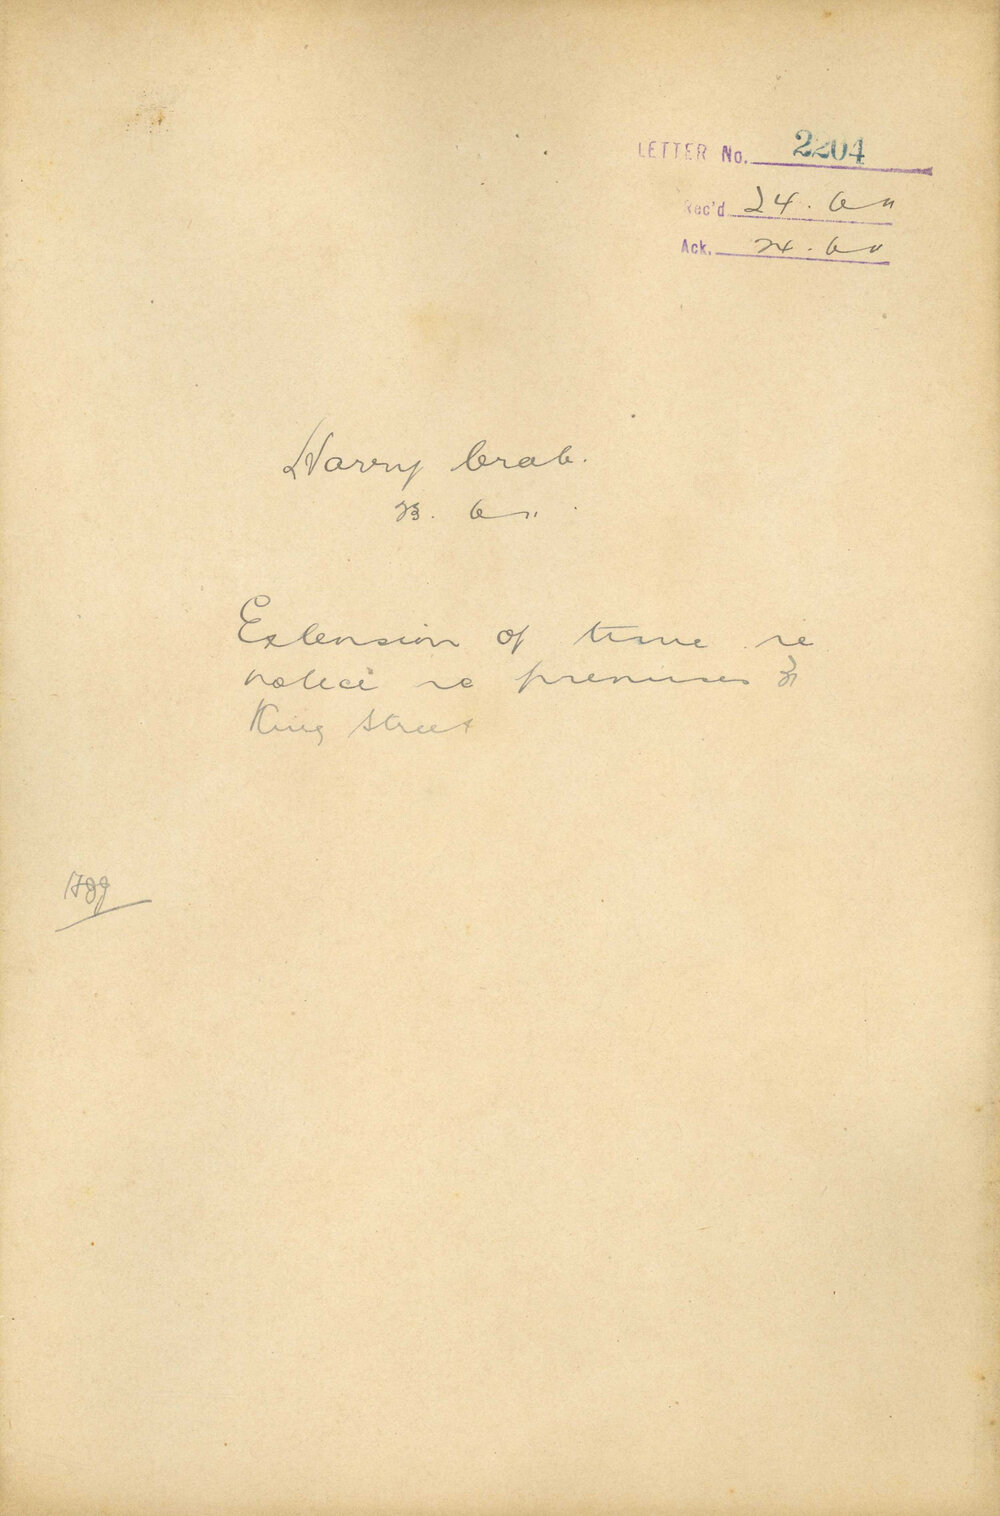 LETTER No. 2204
Rec'd 24.6
Ack. 24.6
Harry Crab.
23. 6
Extension of time re
notice re premises
King Street